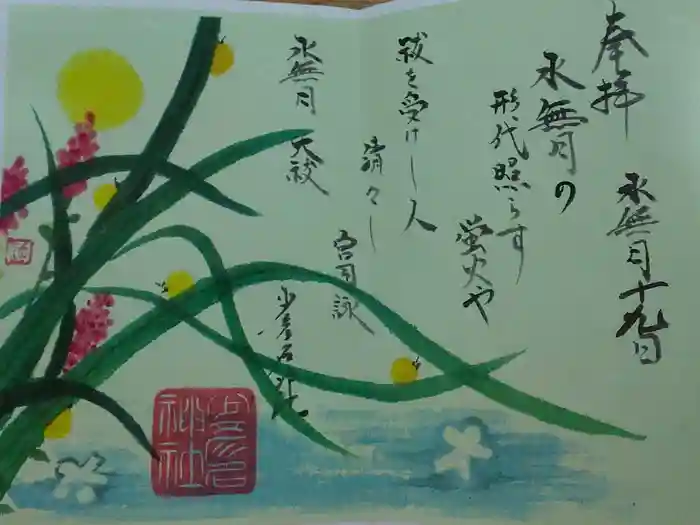 奉拝
水無月十九日
水無月の
形代照らす
蛍火や
祓を受けし人
清々し
宮司詠
水無月 大祓
神社